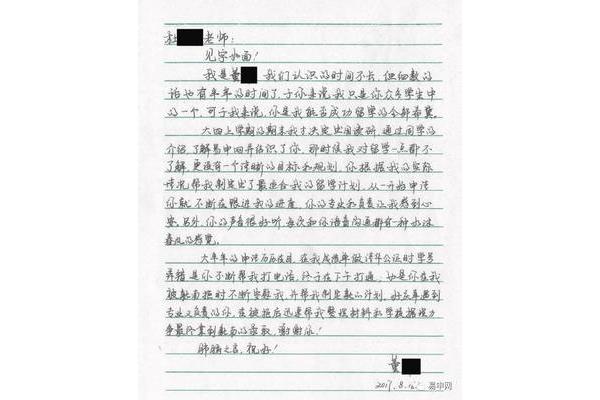 杜 老师:
见字如面!
我是董 我们认识的时间不长,但细数的
话也有半年的时间了,于你来说,我只是你众多学生中
的一个,可于我来说,你是我能否成功留学的全部希冀。
大四上学期的期末我才决定出国读研,通过同学的
介绍,了解易申网并结识了你,那时候我对留学一点都不
了解,更没有一个清晰的目标和规划,你根据我的实际
情况帮我制定出了最适合我的留学计划,从一开始申请
你就不断在跟进我的进度,你的专业和负责让我感到心
安。另外,你的声音很好听,每次和你语音沟通都有一种如沐
春风的感觉。
大半年的申请历历在目,在我成绩单做
是你不断帮我打电话,终于在下午打通,也是你在我
被 拒时不断安慰我,并帮我制定 计划,好在单遇到
专业又负责的你,在被拒后迅速帮我整理材料和学校据理力
争最终拿到 的录取,谢谢你!
肺腑之言,祝好!
董
2017.8. 易申网